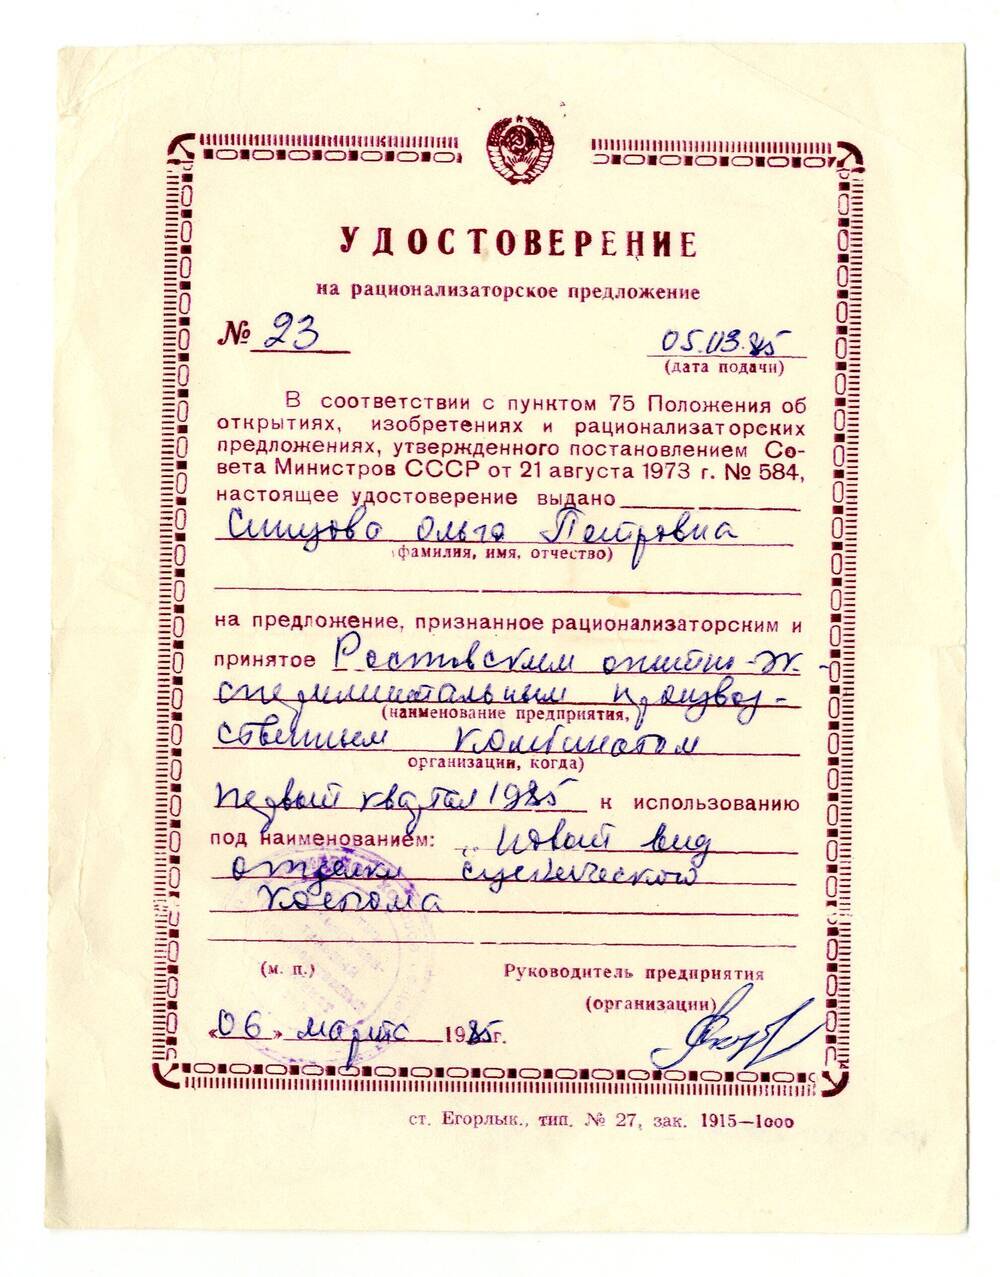 УДОСТОВЕРЕНИЕ
на рационализаторское предложение
№ 23
05.03.85
(дата подачи)
В соответствии с пунктом 75 Положения об
открытиях, изобретениях и рационализаторских
предложениях, утвержденного постановлением Со-
вета Министров СССР от 21 августа 1973 г. № 584,
настоящее удостоверение выдано
Ольга Петровна
(фамилия, имя, отчество)
на предложение, признанное рационализаторским и
принятое Ростовским опытно-эк-
спериментальным производ-
(наименование предприятия,
ственным комбинатом
организации, когда)
первый квартал 1985 к использованию
под наименованием: „Новый вид
отделки сценического
костюма
(м. п.) Руководитель предприятия
(организации)
«06» марта 1985г.
ст. Егорлык., тип. № 27, зак. 1915—1000